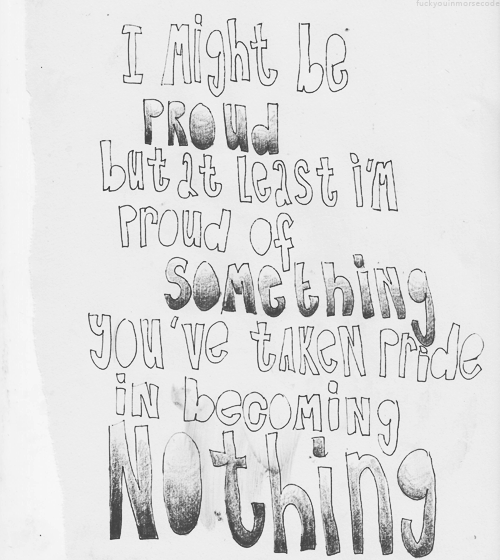 fuckyouinmorsecode
I Might be
PROud
but at Least i'm
Proud of
SOMething
you've tAKeN Pride
in becoming
NOthing